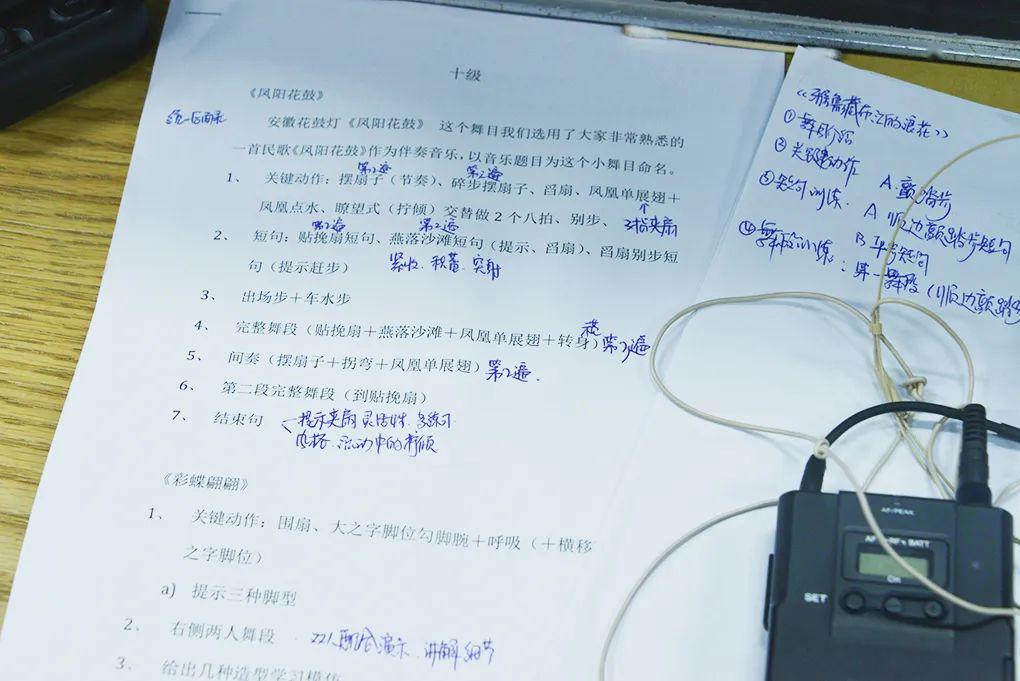 十级
《凤阳花鼓》
安徽花鼓灯《凤阳花鼓》 这个舞目我们选用了大家非常熟悉的
一首民歌《凤阳花鼓》作为伴奏音乐，以音乐题目为这个小舞目命名。
第2遍 第2遍
1、 关键动作：摆扇子（节奏）、碎步摆扇子、舀扇、凤凰单展翅＋
凤凰点水、瞭望式（拧倾）交替做 2 个八拍、别步、 3指夹扇
第2遍 第2遍
2、 短句：贴挽扇短句、燕落沙滩短句（提示、舀扇）、舀扇别步短
句（提示赶步） 紧收、积蓄、突射
3、 出场步＋车水步
4、 完整舞段（贴挽扇＋燕落沙滩＋凤凰单展翅＋转身） 第3遍
5、 间奏（摆扇子＋拐弯＋凤凰单展翅） 第2遍.
6、 第二段完整舞段（到贴挽扇）
7、 结束句 提示夹扇灵活性.多练习
流动中的拧倾
《彩蝶翩翩》
1、 关键动作：围扇、大之字脚位勾脚腕＋呼吸（＋横移
之字脚位）
a) 提示三种脚型
2、 右侧两人舞段 22人配合演示.讲解细节
3、 给出几种造型学习模仿
《雅鲁藏布江的浪花》
① 舞目介绍
② 关键动作 A.颤踏步
③ 短句训练. A 顺边颤踏步短句
B 短句
④ 舞段训练：第一舞段（顺边颤踏步
AF/PEAK
AF RF BATT
ON
SET